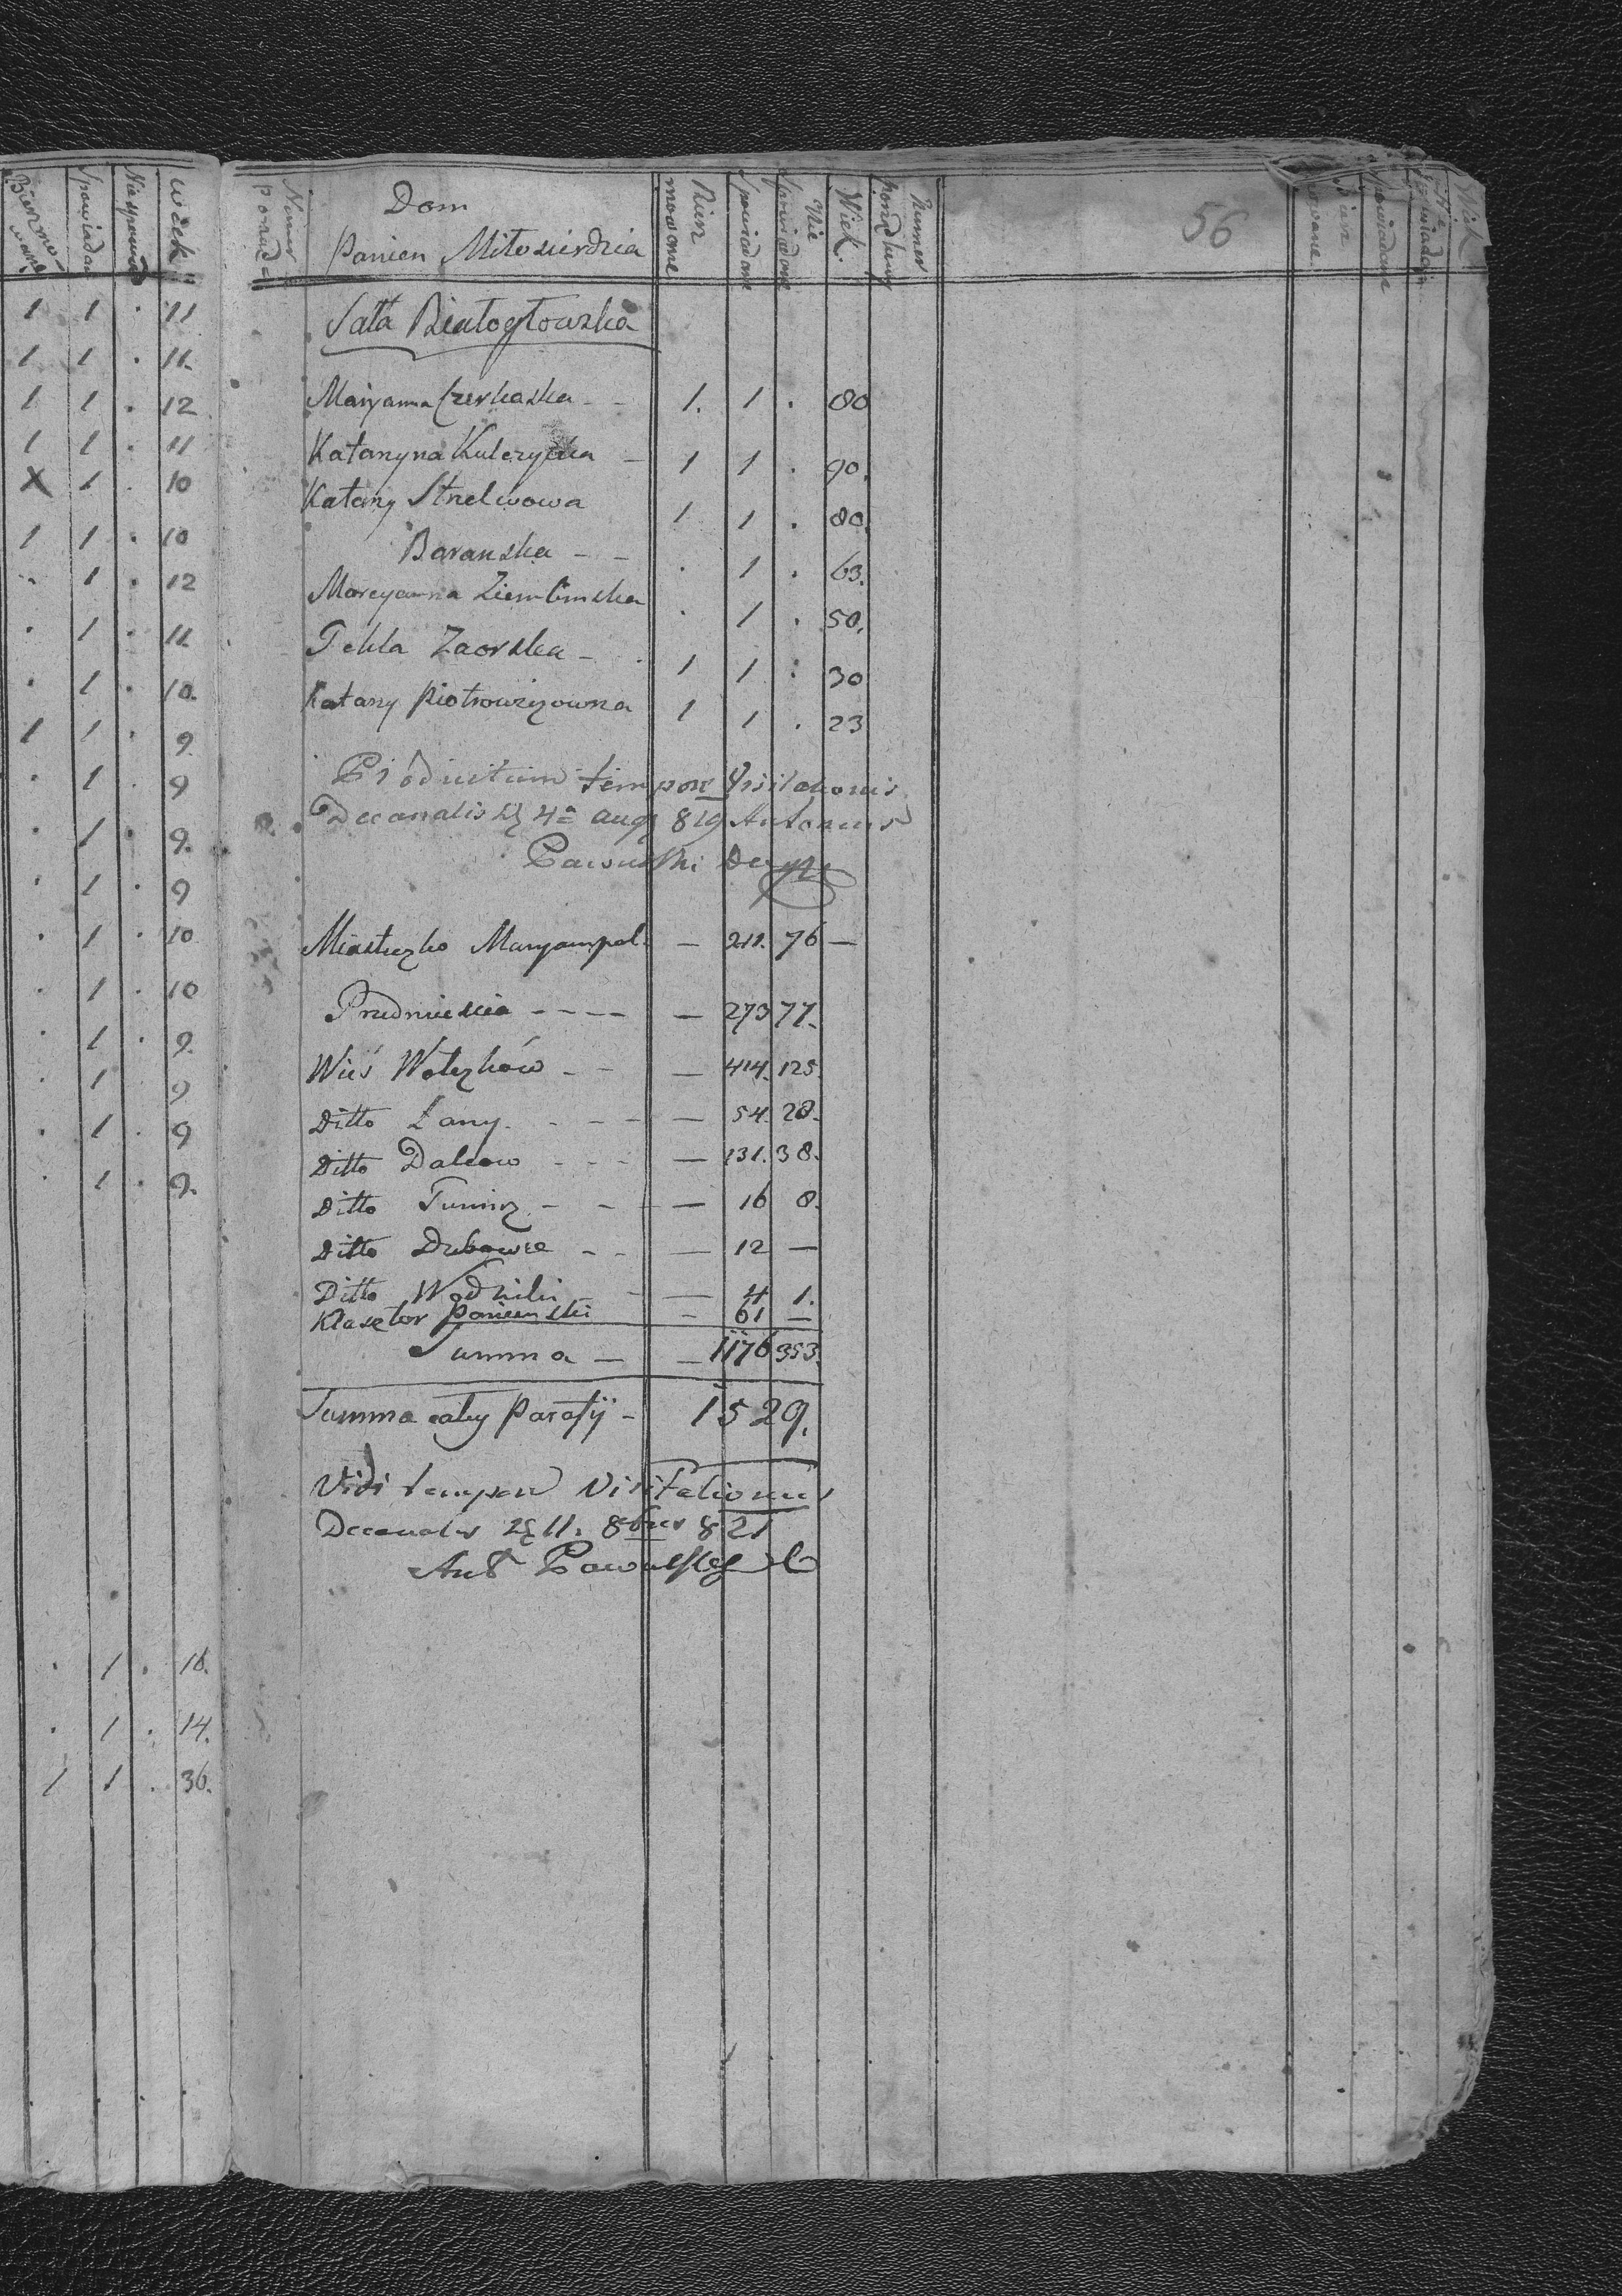 Bierzmowane Spowiadan Niespowiad Wiek
1 1 . 11
1 1 . 11.
1 1 . 12
1 1 . 11
X 1 . 10
1 1 . 10
. 1 . 12
. 1 . 11.
. 1 . 10.
1 1 . 9.
. 1 . 9
. 1 . 9.
. 1 . 9
. 1 . 10
. 1 . 10
. 1 . 9.
. 1 . 9
. 1 . 9
. 1 . 9.
. 1 . 18.
. 1 . 14.
1 1 . 36.
Numer porząd= Dom Bierz mowane Spowiadane Nie Spowiadane Wiek. Numer porządkowy
Panien Miłosierdzia
56
Sala Białogłowska
Maryanna Czerkaska - - 1. 1 . 80
Katarzyna - 1 1 . 90.
Katarzy Strelcowa 1 1 . 80.
Baranska - - . 1 . 63.
Maryanna Ziemlinska . 1 . 50.
Tekla Zaorska - . 1 1 . 30
Katarzy Piotrowiczowna 1 1 . 23
Productum tempore Visitationis
Decanalis 4a aug 819 Antonius
Pawulski
Miasteczko Maryampol. — 211. 76 —
Przedmiescia - - - - — 273 77.
Wieś Wołczków - - — 414. 125.
Ditto Lany. - - - — 54. 28.
Ditto Dalesow - - - — 131. 38.
Ditto Tumirz - - - — 16 8.
Ditto Dubowce - - — 12 —
Ditto Wodniki - — 4 1.
Klasztor Panienski - 61 —
Summa — — 1176 353.
Summa całey Parafij - 1529.
Vidi tempore Visitationis
Decanalis 11. 8bris 821
Ant Pawulski